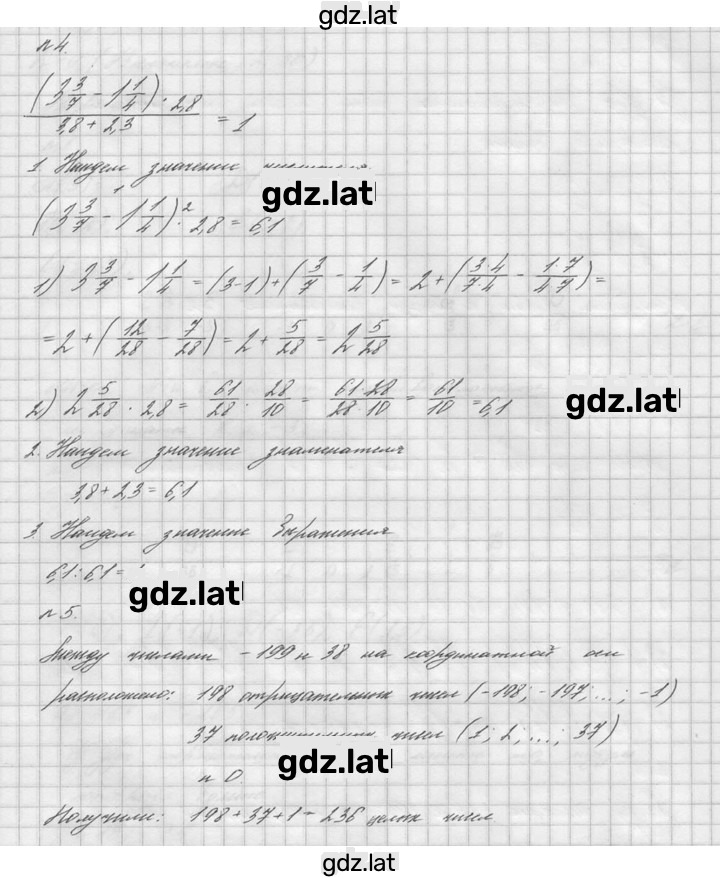 gdz.lat
№4.
((3 3/7 − 1 1/4) · 2,8) / (3,8 + 2,3) = 1
1. Найдем значение числителя.
gdz.lat
(3 3/7 −¹ 1 1/4) ·² 2,8 = 6,1
1) 3 3/7 − 1 1/4 = (3−1) + (3/7 − 1/4) = 2 + (3·4/7·4 − 1·7/4·7) =
= 2 + (12/28 − 7/28) = 2 + 5/28 = 2 5/28
2) 2 5/28 · 2,8 = 61/28 · 28/10 = 61·28/28·10 = 61/10 = 6,1
gdz.lat
2. Найдем значение знаменателя
3,8 + 2,3 = 6,1
3. Найдем значение выражения
6,1 : 6,1 =
gdz.lat
№5.
Между числами −199 и 38 на координатной оси
расположено: 198 отрицательных чисел (−198; −197; ...; −1)
37 положительных чисел (1; 2; ...; 37)
gdz.lat
и 0.
Получили: 198 + 37 + 1 = 236 целых чисел
gdz.lat